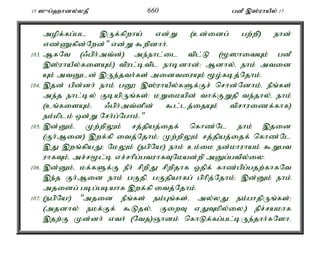 15 ஸுப்ஹானல்லதீ 660 பனீ இஸ்ராயீல் 17
அழிக்கப்பட இருக்கிறாய் என்று (உன்னைப் பற்றி) நான் எண்ணுகின்றேன்" என்று கூறினார்.
103. ஆகவே (ஃபிர்அவ்ன்) அந்நாட்டை விட்டு (மூஸாவையும் பனீ இஸ்ராயீல்களையும்) விரட்டிவிட நாடினான்; ஆனால், நாம் அவனை யும் அவனுடன் இருந்தவர்கள் அனைவரையும் மூழ்கடித்தோம்.
104. இதன் பின்னர் நாம் பனூ இஸ்ராயீல்களுக்குச் சொன்னோம். நீங்கள் அந்த நாட்டில் குடியிருங்கள்; மறுமையின் வாக்குறுதி வந்தால், நாம் (உங்களையும், ஃபிர்அவ்னின் கூட்டத்தையும் விசாரணைக்காக) நம்மிடம் ஒன்று சேர்ப்போம்."
105. இன்னும், முற்றிலும் சத்தியத்தைக் கொண்டே நாம் இதனை (குர்ஆனை) இறக்கி வைத்தோம்; முற்றிலும் சத்தியத்தைக் கொண்டே இது இறங்கியது; மேலும் (நபியே) நாம் உம்மை நன்மாராயம் கூறுபவ ராகவும், அச்சமூட்டி எச்சரிப்பவராகவுமேயன்றி அனுப்பவில்லை.
106. இன்னும், மக்களுக்கு நீர் சிறிது சிறிதாக ஓதிக் காண்பிப்பதற்காகவே இந்த குர்ஆனை நாம் பகுதி, பகுதியாகப் பிரித்தோம்; இன்னும் நாம் அதனைப் படிப்படியாக இறக்கி வைத்தோம்.
107. (நபியே) "அதனை நீங்கள் நம்புங்கள், அல்லது நம்பாதிருங்கள்; (அதனால் நமக்குக் கூடுதல், குறைவு எதுவுமில்லை.) நிச்சயமாக இதற்கு முன்னர் எவர் (வேத)ஞானம் கொடுக்கப்பட்டிருந்தார்களோ,